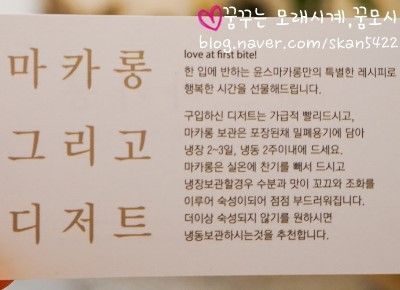 꿈꾸는 모래시계,꿈모시
blog.naver.com/skan5422
마카롱
그리고
디저트
love at first bite!
한 입에 반하는 윤스마카롱만의 특별한 레시피로
행복한 시간을 선물해드립니다.
구입하신 디저트는 가급적 빨리드시고,
마카롱 보관은 포장된채 밀폐용기에 담아
냉장 2~3일, 냉동 2주이내에 드세요.
마카롱은 실온에 찬기를 빼서 드시고
냉장보관할경우 수분과 맛이 꼬끄와 조화를
이루어 숙성이되어 점점 부드러워집니다.
더이상 숙성되지 않기를 원하시면
냉동보관하시는것을 추천합니다.